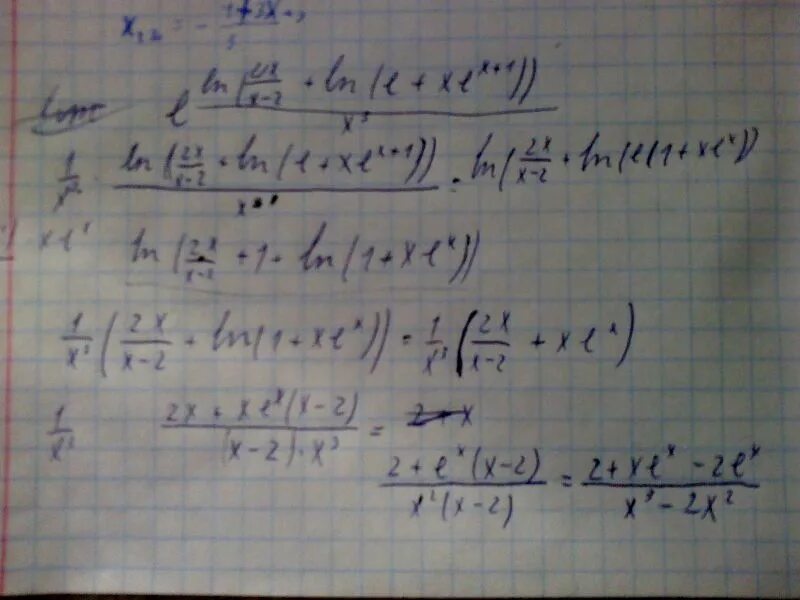 x₁,₂ = -
e^(ln(2x/(x-2) + ln(e + xe^(x+1)))/x³)
1/x² · ln(2x/(x-2) + ln(e + xe^(x+1)))/x³ = ln(2x/(x-2) + ln(e(1 + xe^x))
xe^x ln(2x/(x-2) + 1 + ln(1 + xe^x))
1/x³ (2x/(x-2) + ln(1 + xe^x)) = 1/x³ (2x/(x-2) + xe^x)
1/x³ (2x + xe^x(x-2))/((x-2)·x³) =
(2 + e^x(x-2))/(x²(x-2)) = (2 + xe^x - 2e^x)/(x³ - 2x²)